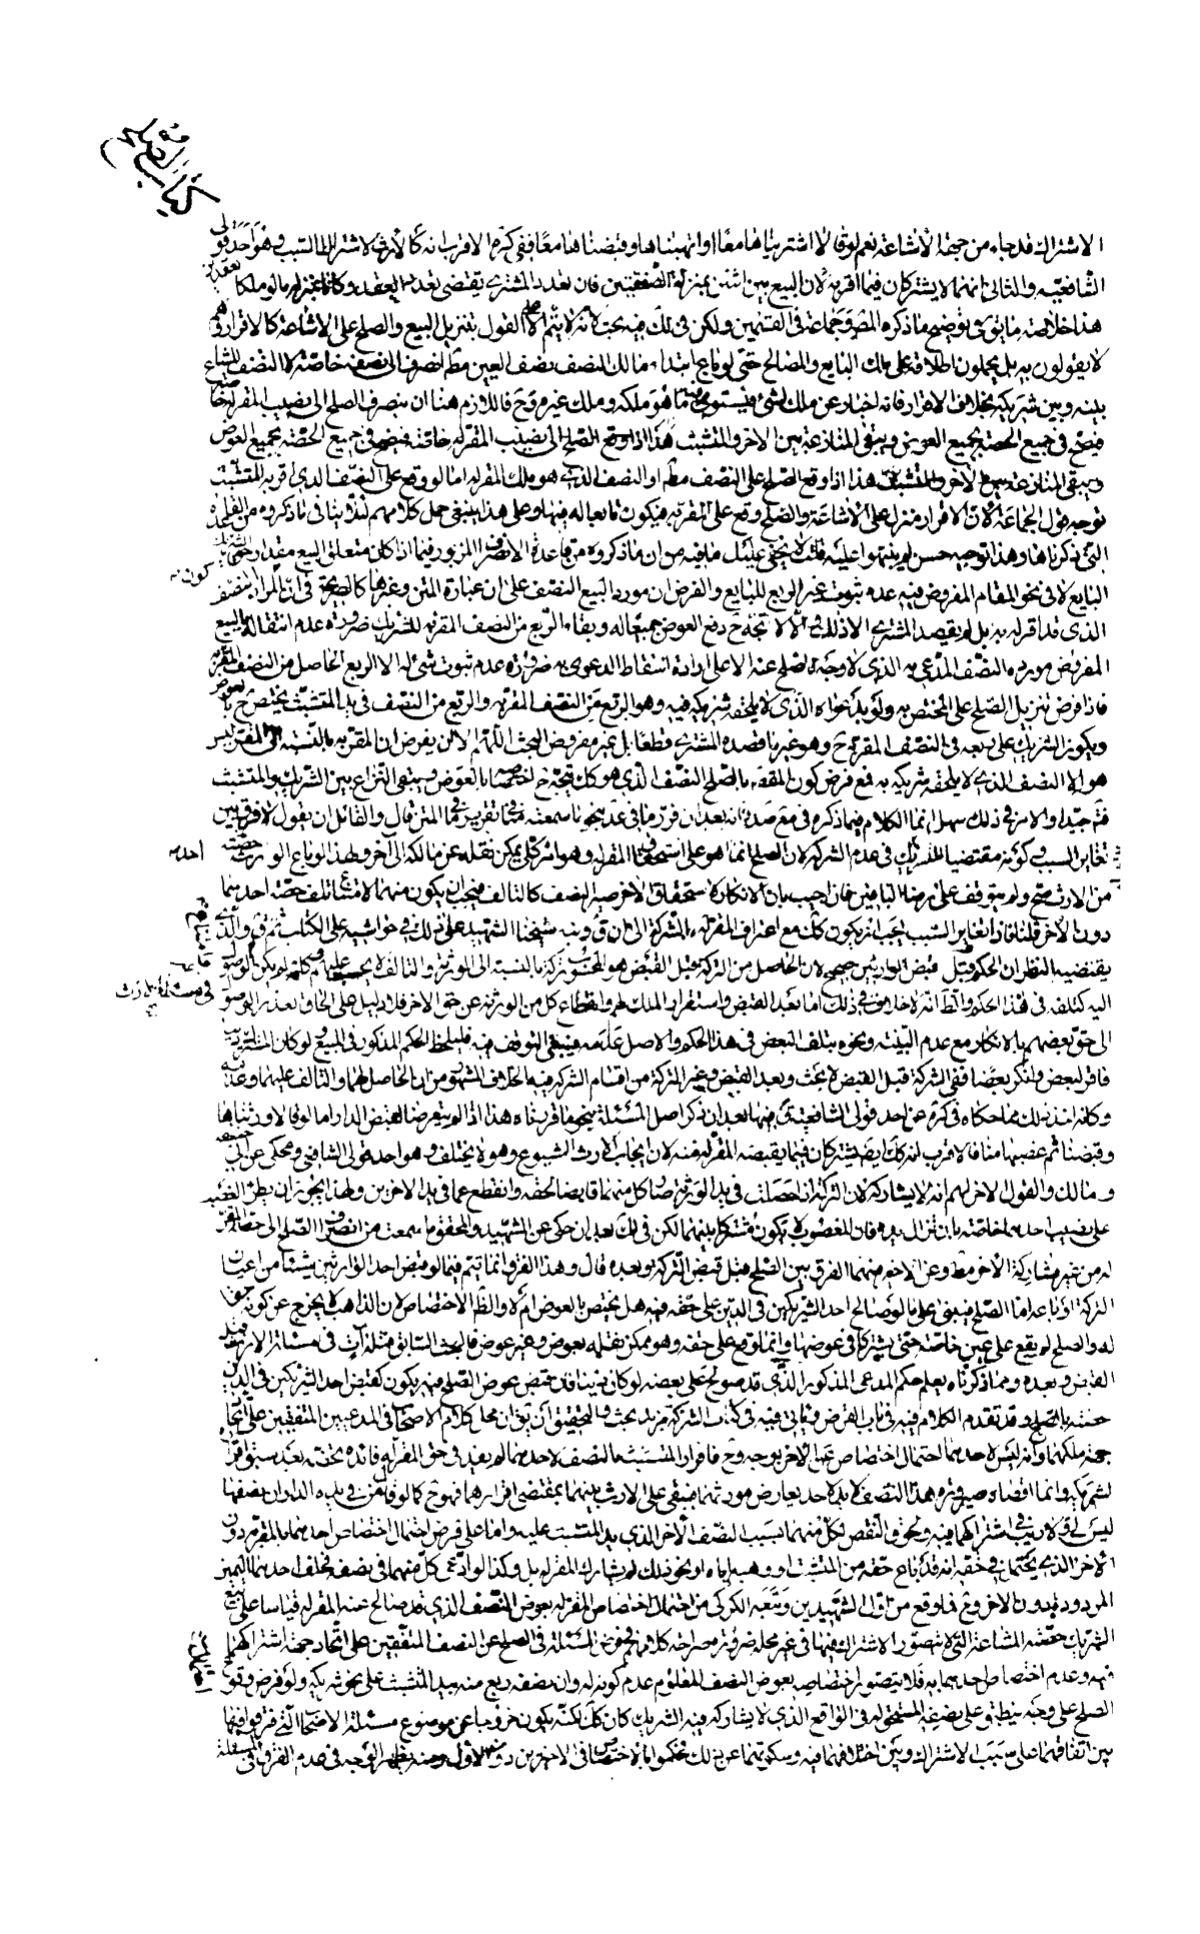 كتاب الصلح
الاشتراك قد جاء من جهة الاشاعة نعم لو قالا اشتريناها معا او اتهبناها وقبضناها معا ففي كره الاقرب انه كالارث لاشتراك السبب وهو احد قولي
الشافعية والثاني انهما لا يشتركان فيما اقر به لان البيع بين اثنين بمنزلة الصفقتين فان تعدد المشتري يقتضي تعدد العقد وكانا بمنزلة ما لو ملكا بعقدين
هذا خلاصة ما يؤتى في توضيح ما ذكره المص وجماعة في القسمين ولكن في لك فيه بحث لانه لا يتم الا على القول بتنزيل البيع والصلح على الاشاعة كالاقرار وهم
لا يقولون به بل يحملون اطلاقه على ملك البايع والمصالح حتى لو باع ابتداء مالك النصف نصف العين مط انصرف الى نصفه خاصة لا النصف المشاع
بينه وبين شريكه بخلاف الاقرار فانه اخبار عن ملك الشئ فيستوي فيه ما هو ملكه وملك غيره وح فاللازم هنا ان ينصرف الصلح الى نصيب المقر له خاصة
فيصح في جميع الحصة بجميع العوض وتبقى المنازعة بين الاخر والمتشبث هذا اذا وقع الصلح الى نصيب المقر له خاصة فيصح في جميع الحصة بجميع العوض
ويبقى المنازعة بين الاخر والمتشبث هذا اذا وقع الصلح على النصف مط او النصف الذي هو ملك المقر له اما لو وقع على النصف الذي اقر به المتشبث
توجه قول الجماعة لان الاقرار منزل على الاشاعة والصلح وقع على المقر به فيكون تابعا له فيها وعلى هذا ينبغي حمل كلامهم لئلا ينافي ما ذكروه من القاعدة
التي ذكرناها وهذا توجيه حسن لم ينبهوا عليه قلت لا يخفى عليك ما فيه من ان ما ذكروه من قاعدة الانصراف المزبور فيما اذا كان متعلق البيع مقدار حق
البايع لا في نحو المقام المفروض فيه عدم ثبوت غير الربع للبايع والفرض ان مورد البيع النصف على ان عبارة المتن وغيرها كالصريحة في ان المراد النصف
الذي قد اقر له به بل لم يقصد المشتري الا ذلك والا لا تتجه ح دفع العوض جميعا له وبقاء الربع من النصف المقر به للشريك ضرورة عدم انتقاله بالبيع
المفروض مورده النصف المدعى به الذي لا وجه لصلح عنه الا على ارادة اسقاط الدعوى به ضرورة عدم ثبوت شئ له الا الربع الحاصل من النصف المقر به
فاذا فرض تنزيل الصلح على المختص به ولو بدعواه الذي لا يلحقه شريكه فيه وهو الربع من النصف المقر به والربع من النصف في يد المتشبث يختص ح بالعوض
ويكون الشريك على ربعه في النصف المقر به ح وهو غير ما قصده المشتري قطعا بل غير مفروض البحث اللهم الا ان يفرض ان المقر به بالنسبة الى المقر ليس
هو الا النصف الذي لا يلحقه شريكه به فمع فرض كون المقصود بالصلح النصف الذي هو كك تتجه ح اختصاصه بالعوض ويبقى النزاع بين الشريك والمتشبث
فت جيدا والامر في ذلك سهل انما الكلام فيما ذكره في مع صدة فانه بعد ان قرر ما في عد بنحو ما سمعته منا في تقرير ما في المتن قال والقائل ان يقول لا فرق بين
تغاير السبب وكونه مقتضيا للتشريك في عدم الشركة لان الصلح انما هو على استحقاق المقر له وهو امر كلي يمكن نقله عن مالكه الى آخر ولهذا لو باع الوارث حصته
من الارث صح ولم يتوقف على رضا الباقين فان اجيب بان الانكار لاستحقاق الاخر صير النصف كالتالف فيجب ان يكون منهما لامتناع تلف حصة احدهما
دون الاخر قلنا فاذا تغاير السبب يجب ان يكون كك مع اعتراف المقر له بالشركة الى ان ق وبنه شيخنا الشهيد على ذلك في حواشيه على الكتاب ثم ق والذي
يقتضيه النظر ان الحكم قبل قبض الوارثين صحيح لان الحاصل من التركة قبل القبض هو المحسوب تركة بالنسبة الى الورثة والتالف لا يحسب عليهم وكانه لم يكن لو
اليه كتلفه في هذا الحكم والظ انه لا خلاف في ذلك اما بعد القبض واستقرار الملك لهم وانقطاع كل من الورثة عن حق الاخر فلا دليل على الحاق تعذر الوصول
الى حق بعضهم بالانكار مع عدم البينة ونحوه بتلف البعض في هذا الحكم والاصل عدمه فينبغي التوقف فيه فليلحظ الحكم المذكور في المبيع لو كان المشتري
فاقر لبعض وانكر بعضا ففي الشركة قبل القبض لا بحث وبعد القبض وغير التركة من اقسام الشركة فيه الخلاف المشهور من ان الحاصل لهما والتالف عليهما وعدمه
وكانه اخذ ذلك مما حكاه في كره عن احد قولي الشافعية فيها بعد ان ذكر اصل المسئلة بنحو ما قررناه هذا اذا لم يتعرضا لقبض الدار اما لو قالا ورثناها
وقبضنا ثم غصبها منا فالاقرب انه كك ايضا يشتركان فيما يقبضه المقر له منه لان ايجاب الارث الشيوع وهو لا يختلف وهو احد قولي الشافعي ومحكي عن ابي حنيفة
و مالك والقول الاخر لهم انه لا يشاركه لان التركة اذا حصلت في يد الورثة صار كل منهما قابضا لحقه وانقطع عما في يد الاخرين ولهذا يجوز ان يطرئ الغصب
على نصيب احدهما خاصة بان تزال يده فان المغصوب لا يكون مشتركا بينهما لكن في لك بعد ان حكى عن الشهيد والمحقق ما سمعت من انصراف الصلح الى حصة المقر
له من غير مشاركة الاخر مط وعن الاخير منهما الفرق بين الصلح قبل قبض التركة وبعده قال وهذا الفرق انما يتم فيما لو قبض احد الوارثين شيئا من اعيان
التركة او باعه اما الصلح فيبقى على ما لو صالح احد الشريكين في الدين على حقه فيه هل يختص بالعوض ام لا والظ الاختصاص لان الذاهب لا يخرج عن كونه حقا
له والصلح لم يقع على عين خاصة حتى يشتركا في عوضها وانما وقع على حقه وهو ممكن نقله بعوض وغير عوض فالبحث السابق مثله آت في مسئلة الارث قبل
القبض وبعده ومما ذكرناه يعلم حكم المدعى المذكور الذي قد صولح على بعضه لو كان دينا قد قبض عوض الصلح فهل يكون كقبض احد الشريكين في الدين
حصته بالصلح وقد تقدم الكلام فيه في باب القرض وياتي فيه في كتاب الشركة مزيد بحث والتحقيق ان يق ان محل كلام الاصحاب في المدعيين المتفقين على اتحاد
جهة ملكهما وانه ليس لاحدهما احتمال اختصاص عن الاخر بوجه وح فاقرار المتشبث بالنصف لاحدهما لم يفيد في حق المقر له فائدة تخصه بعد سبق اقراره
لشريكه وانما اقصاه صيرورة هذا النصف لا يد لاحد يعارض مورثهما فيبقى على الارث بينهما بمقتضى اقرارهما فهو ح كما لو قال من في يده الدار ان نصفها
ليس لي ولا ريب في اشتراكهما فيه ولحوق النقص لكل منهما بسبب النصف الاخر الذي بيد المتشبث عليه واما على فرض احتمال اختصاص احدهما بالمقر به دون
الاخر الذي يحتمل في حقه انه قد باع حقه من المتشبث او وهبه اياه او نحو ذلك لم يشارك المقر له بل وكذا لو ادعى كل منهما في نصفه فحلف احدهما اليمين
المردودة دون الاخر وح فما وقع من ثاني الشهيدين وتبعه الكركي من احتمال اختصاص المقر له بعوض النصف الذي قد صالح عنه المقر له قياسا على بيع
الشريك حصته المشاعة التي لا يتصور الاشتراك فيها في غير محله ضرورة صراحة كلامهم في فرض المسئلة في الصلح عن النصف المتفقين على اتحاد جهة اشتراكهما
فيه وعدم اختصاص احدهما به فلا يتصور اختصاصه بعوض النصف المعلوم عدم كونه له وان نصفه ربع منه بيد المتشبث على نحو شريكه ولو فرض وقوع
الصلح على وجه ينطبق على نصفه المستحق له في الواقع الذي لا يشاركه فيه الشريك كان كك لكنه يكون خروجا عن موضوع مسئلة الاصحاب التي فرقوا فيها
بين اتفاقهما على سبب الاشتراك وبين اختلافهما فيه وسكوتهما عن ذلك فحكموا بالاختصاص في الاخيرين دون الاول ومنه يظهر الوجه في عدم الفرق في المسئلة